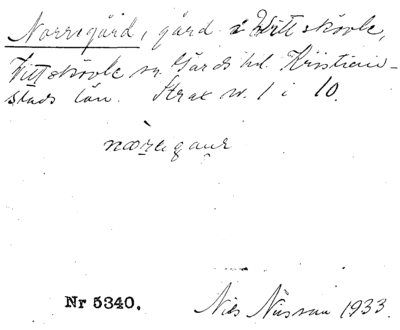 Norregård, gård i Vittskövle,
Vittskövle sn. Gärds hd. Kristian-
stads län. Strax nv. 1 i 10.
nòregaur
Nr 5340.
Nils Nilsson 1933.